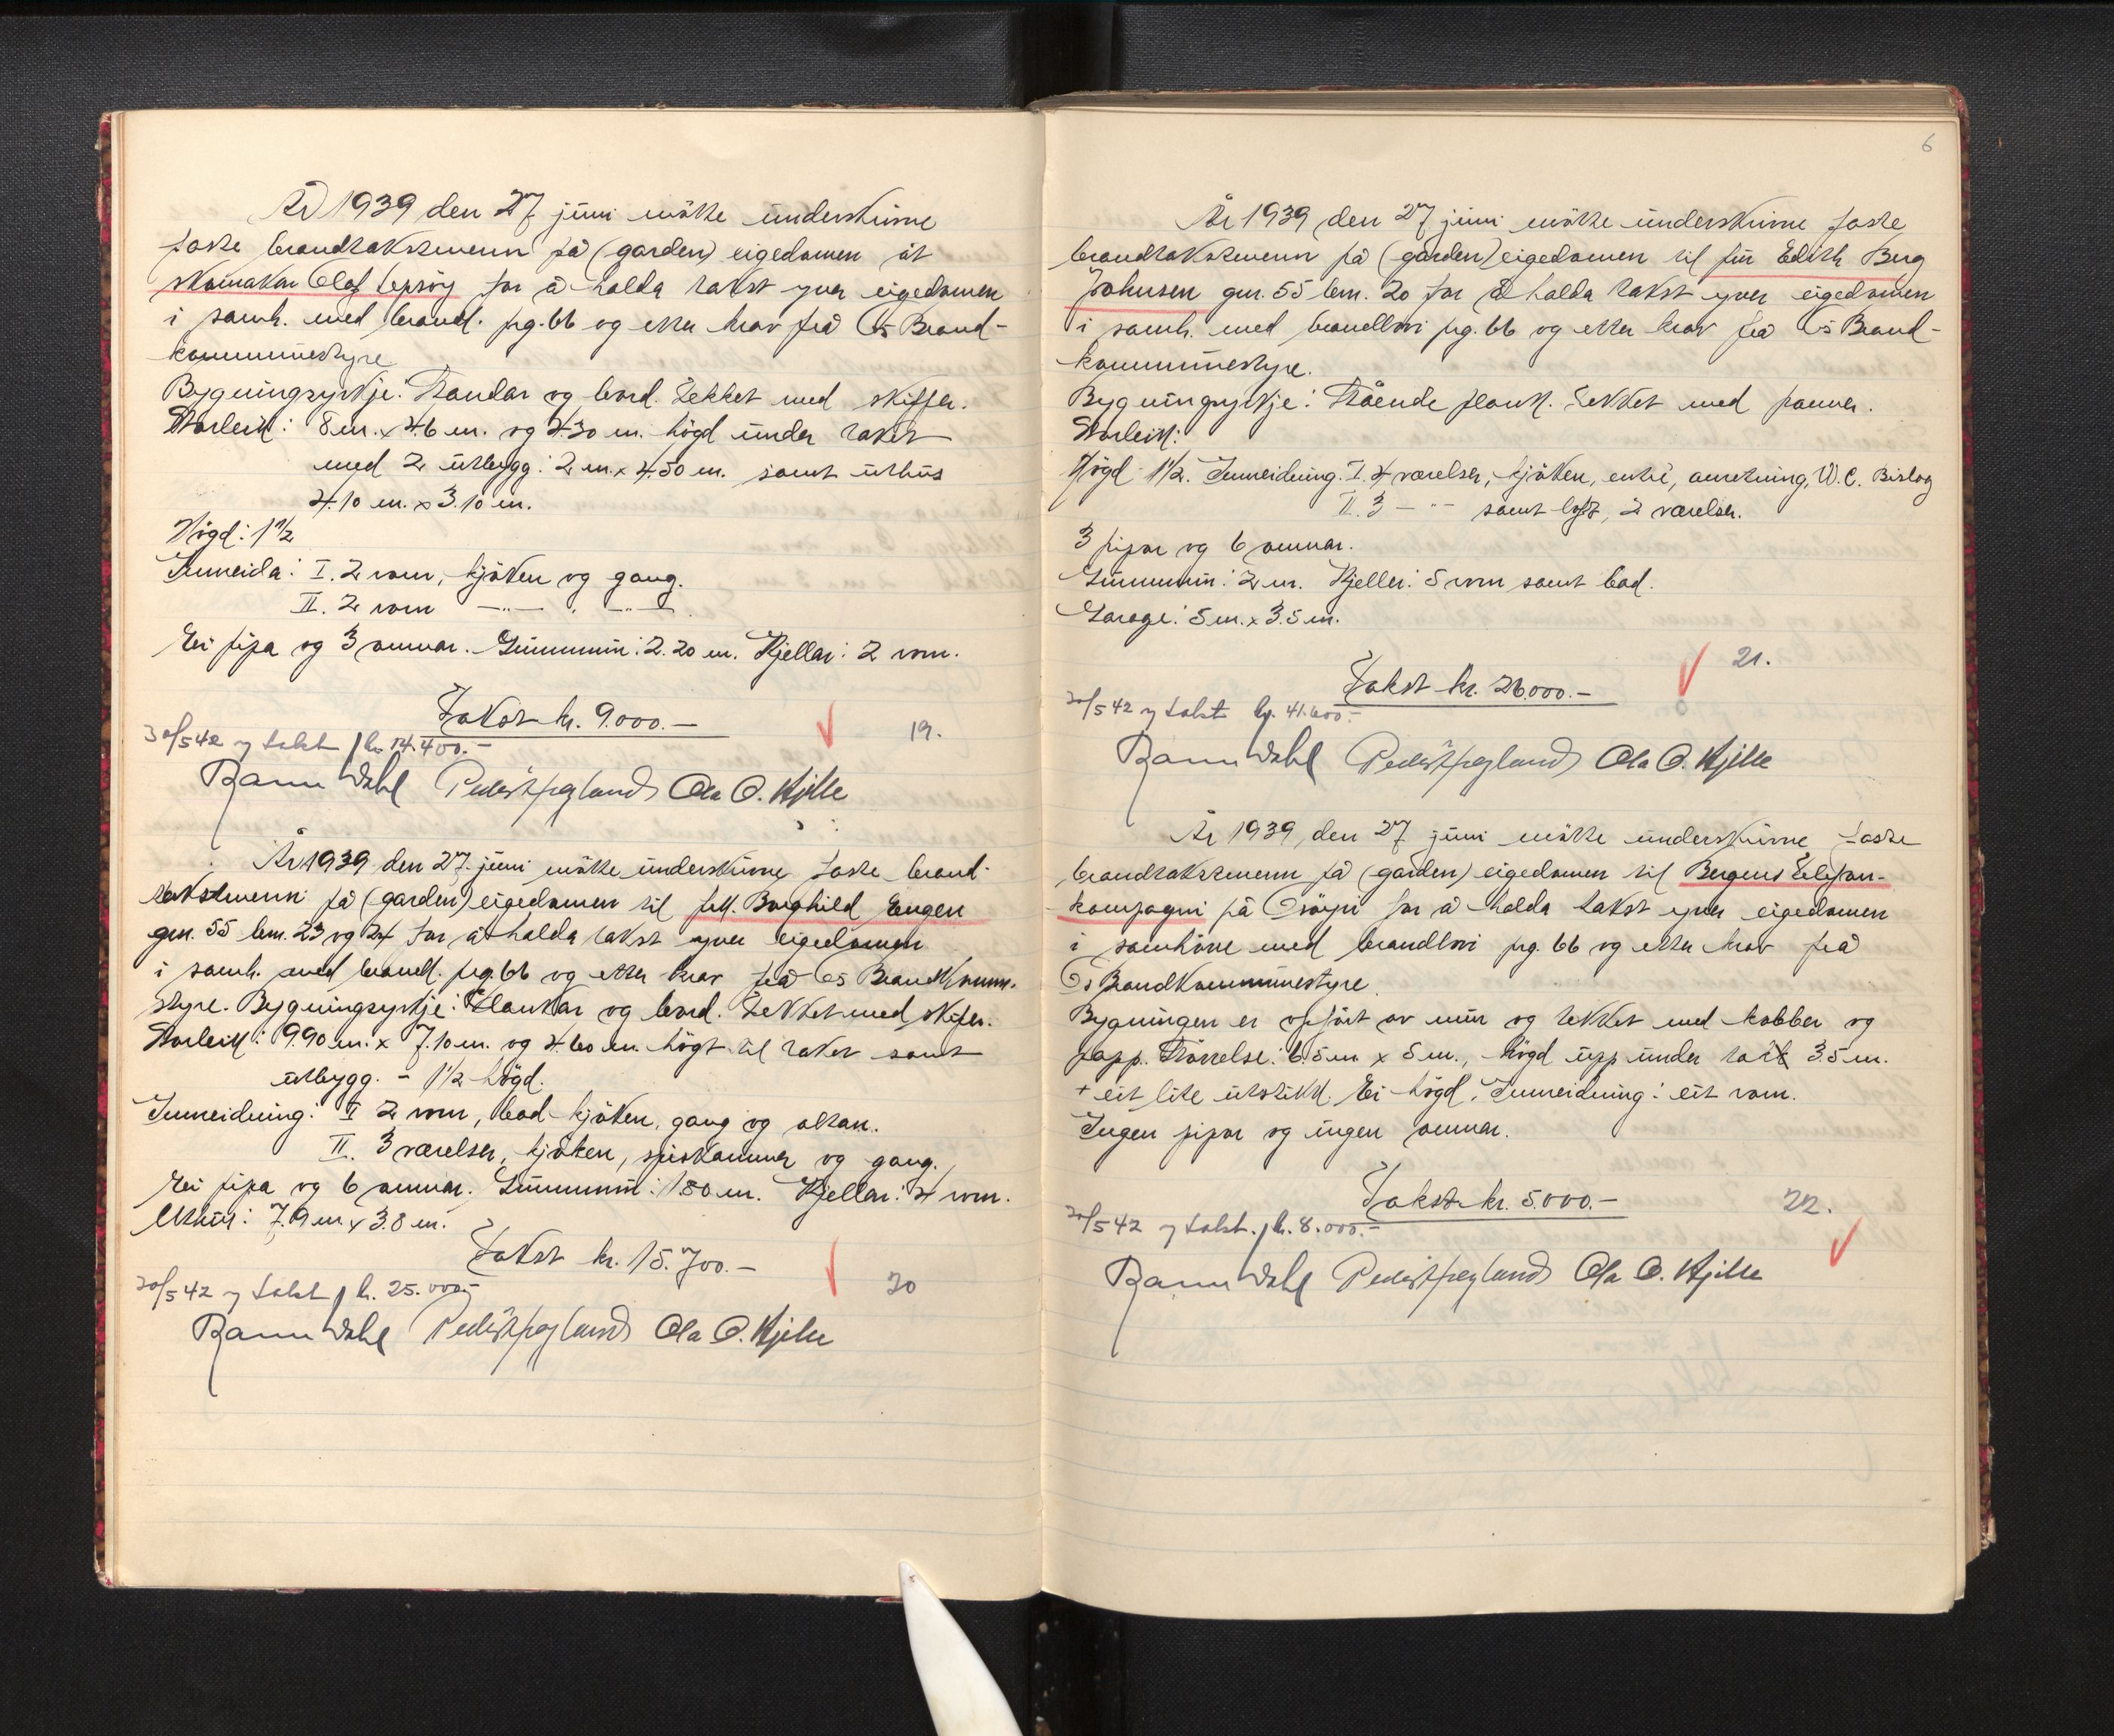 År 1939 den 27 juni mötte underskrivne
faste brandtakstmenn på (garden) eigedomen åt
skomakar Olaf Lepsöy for å halda takst yver eigedomen
i samh. med brandl. prg. 66 og etter krav frå Os Brand-
kommunestyre
Bygningsyrkje: Standar og bord. Tekket med skiffer.
Storleik: 8 m. x 4.6 m. og 4.30 m. högd under taket
med 2 utbygg: 2 m. x 4.50 m. samt uthus
4.10 m. x 3.10 m.
Högd: 1 1/2
Inneida: I. 2 rom, kjöken og gang.
II. 2 rom —"— , —"—
Ei pipa og 3 omnar. Grunnmur: 2.20 m. Kjellar: 2 rom.
Takst kr. 9.000.—
30/5 42 ny takst kr. 14.400.—
19.
Ola O. Hjelle
År 1939 den 27. juni mötte underskrivne faste brand-
takstmenn på (garden) eigedomen til frk. Borghild Engen
gnr. 55 bnr. 23 og 24 for å halda takst yver eigedomen
i samh. med brandl. prg. 66 og etter krav frå Os Brandkomm.
styre. Bygningsyrkje: Plankar og bord. Tekket med skifer.
Storleik: 9.90 m. x 7.10 m. og 4.60 m. högt til taket samt
utbygg. - 1 1/2 högd.
Inneidning: I 2 rom, bad - kjöken, gang og altan.
II. 3 værelser, kjöken, spiskammer og gang.
Ei pipa og 6 omnar. Grunnmur: 1.80 m. Kjellar: 4 rom.
Uthus: 7.19 m x 3.8 m.
Takst kr. 15.700.—
30/5 42 ny takst kr. 25.000.-
20
Ola O. Hjelle
6
År 1939, den 27 juni mötte underskrivne faste
brandtakstmenn på (garden) eigedomen til fru Edith Berg
Johnsen gnr. 55 bnr. 20 for å halda takst yver eigedomen
i samh. med brandlovi prg. 66 og etter krav frå Os Brand-
kommunestyre.
Bygningsyrkje: Stående plank. Tekket med panner.
Storleik:
Högd 1 1/2. Inneidning. I. 4 værelser, kjöken, entré, anretning, W.C. Bislag
II. 3 —"— samt loft, 2 værelser.
3 pipor og 6 omnar.
Grunnmur: 2 m. Kjeller: 5 rom samt bad.
Garage: 5 m. x 3.5 m.
Takst kr. 26.000.—
21.
30/5 42 ny takst kr. 41.600.-
Ola O. Hjelle
År 1939, den 27 juni mötte underskrivne faste
brandtakstmenn på (garden) eigedomen til Bergens Telefon-
kompagni på Osöyri for å halda takst yver eigedomen
i samhöve med brandlovi prg. 66 og etter krav frå
Os Brandkommunestyre.
Bygningen er opfört av mur og tekket med kobber og
papp. Störrelse: 6.5 m x 5 m., högd upp under tak 3.5 m.
+ eit lite utstikk. Ei högd. Inneidning: eit rom.
Ingen pipor og ingen omnar.
Takst kr. 5.000.—
22.
30/5 42 ny takst. kr. 8.000.-
Ola O. Hjelle